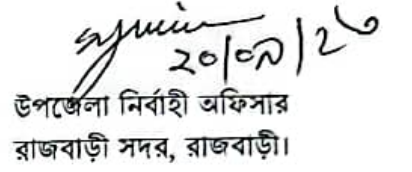 ২০/০৯/২৩
উপজেলা নির্বাহী অফিসার
রাজবাড়ী সদর, রাজবাড়ী।